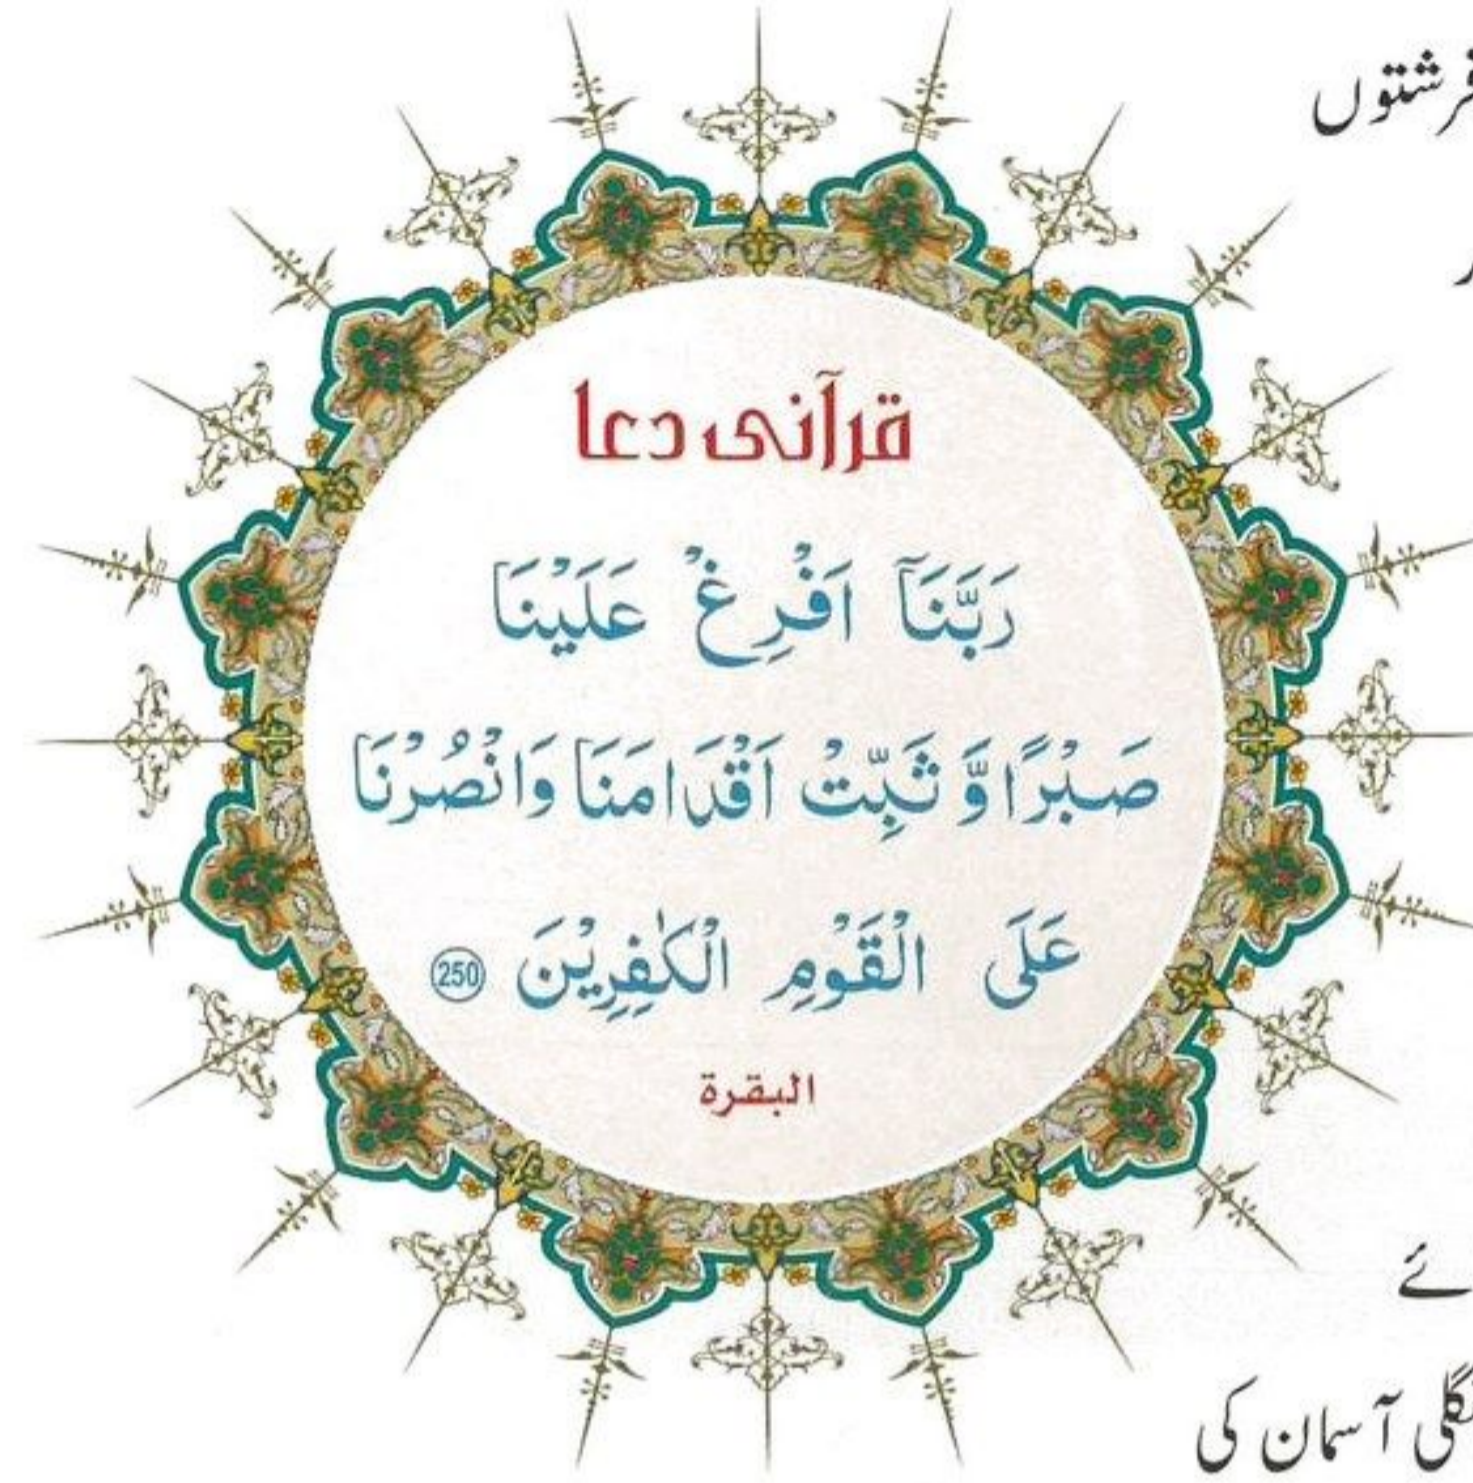 فرشتوں
قرآنی دعا
رَبَّنَآ اَفْرِغْ عَلَيْنَا
صَبْرًا وَّ ثَبِّتْ اَقْدَامَنَا وَانْصُرْنَا
عَلَى الْقَوْمِ الْكٰفِرِيْنَ 250
البقرة
آسمان کی